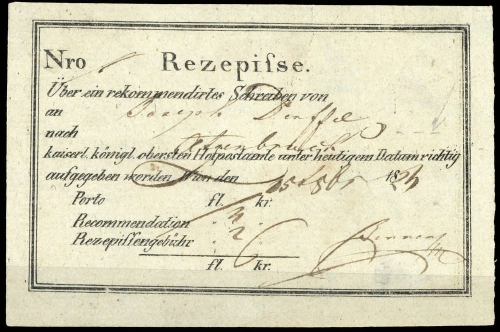 Nro Rezepisse.
Über ein rekommendirtes Schreiben von
an Joseph
nach
kaiserl. königl. obersten Hofpostamte unter heutigem Datum richtig
aufgegeben worden Wien den 15t 8br 1824
Porto fl. kr.
Recommendation . 4 .
Rezepissengebühr . 2 .
fl. 6 kr.